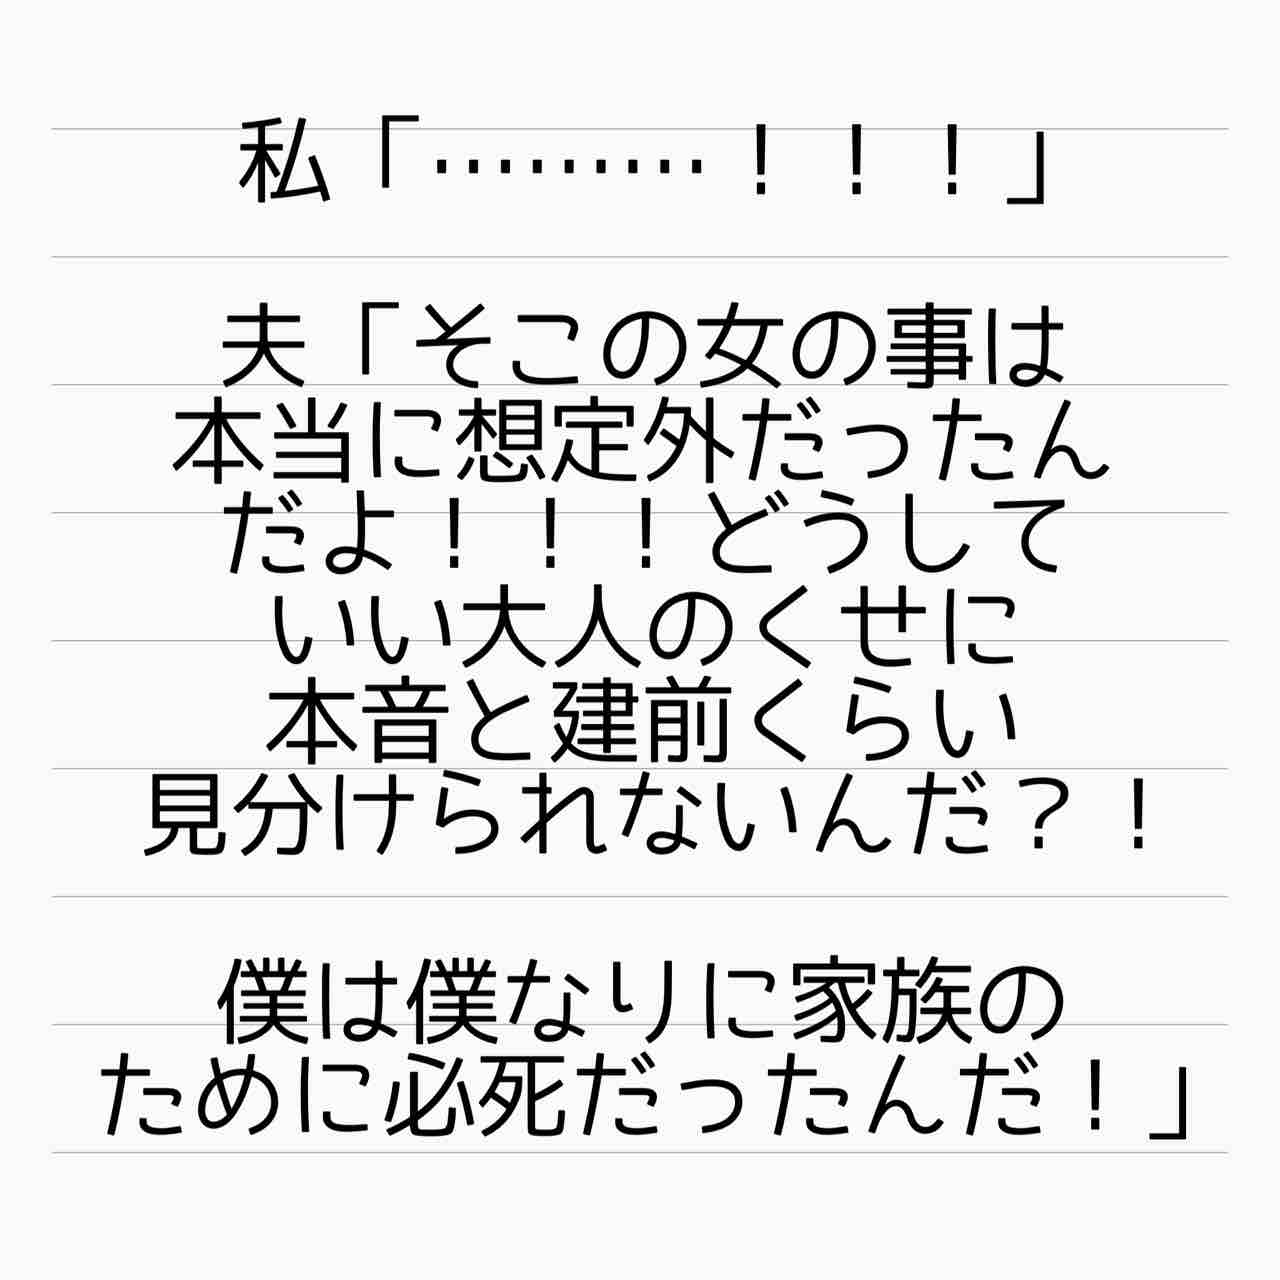 私「………！！！」
夫「そこの女の事は
本当に想定外だったん
だよ！！！どうして
いい大人のくせに
本音と建前くらい
見分けられないんだ？！
僕は僕なりに家族の
ために必死だったんだ！」